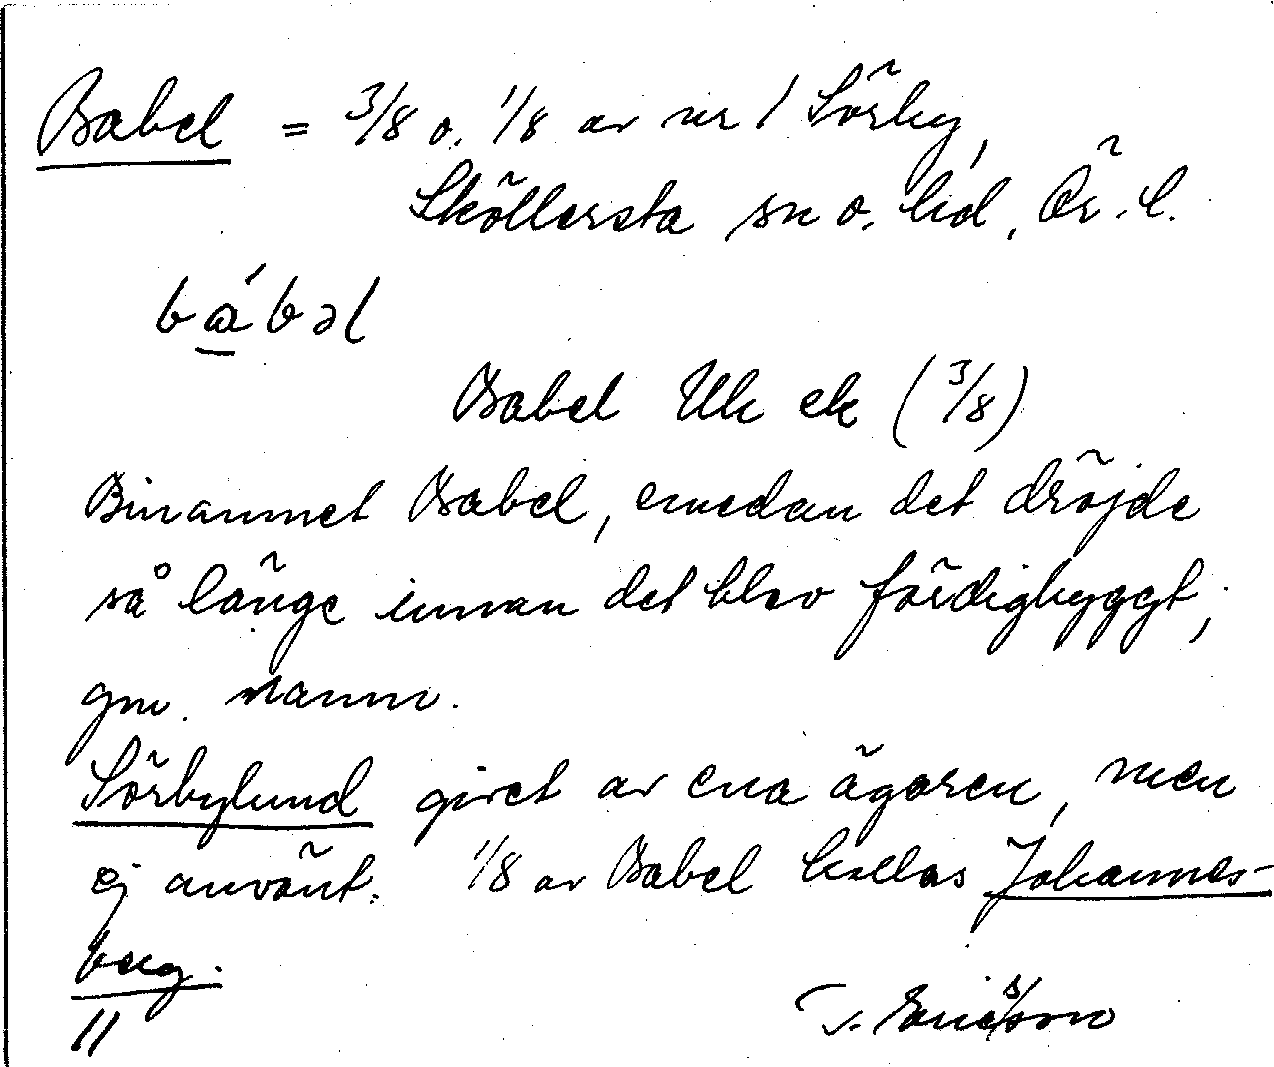 Babel = 3/8 o. 1/8 av nr 1 Sörby,
Sköllersta sn o. hd, Ör. l.
bábəl
Babel Uk ek (3/8)
Binamnet Babel, emedan det dröjde
så länge innan det blev färdigbyggt,
gm. namn.
Sörbylund givet av ena ägaren, men
ej använt. 1/8 av Babel kallas Johannes-
berg.
11
T. Ericsson